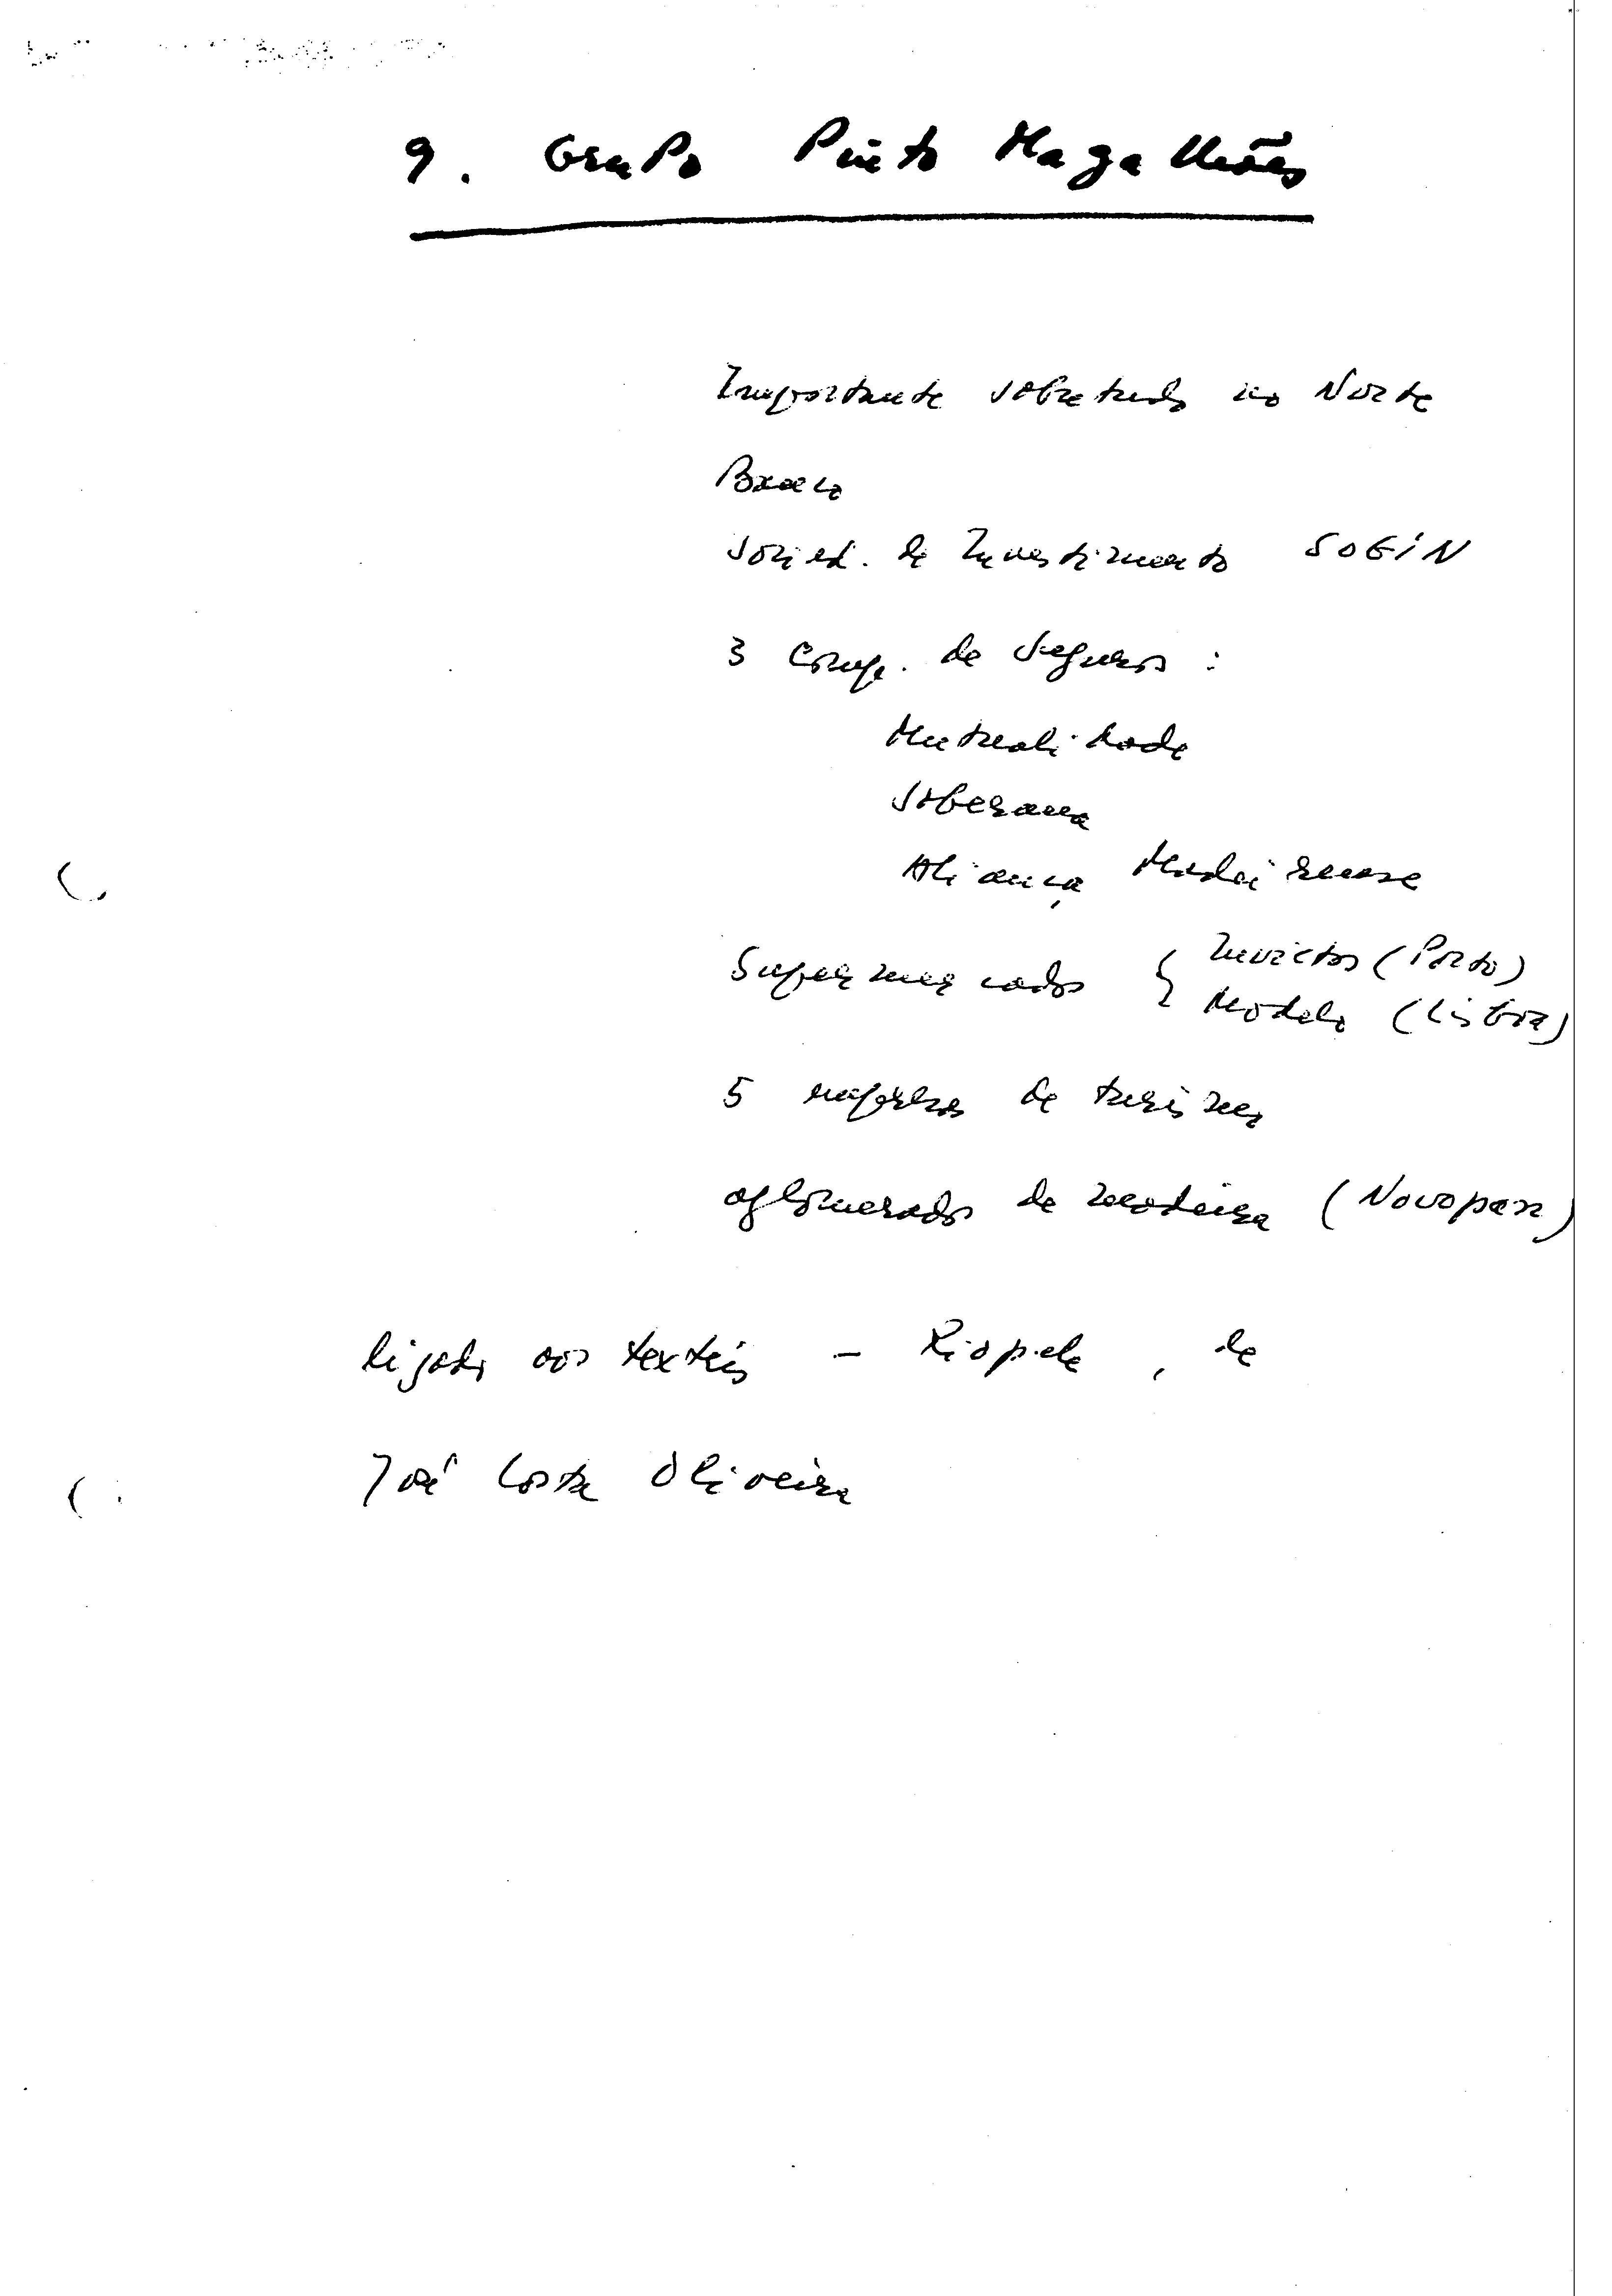 9. Grupo Pinto Magalhães
Importante sobretudo no Norte
Banco
Socied. de Investimento SOGIN
3 Comp. de Seguros :
Mutualidade
Soberana
Aliança Madeirense
Supermercados { Invictos (Porto)
Modelo (Lisboa)
5 empresas de turismo
aglomerados de madeira (Novopan)
ligado aos textéis – Riopele, de
José Costa Oliveira